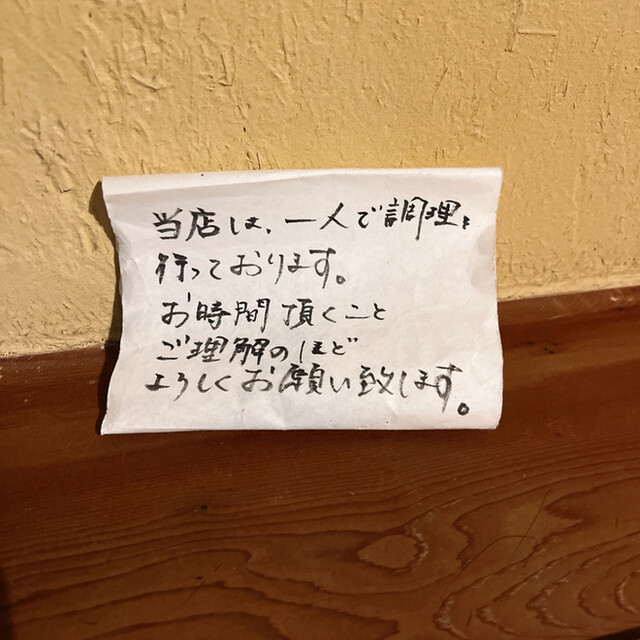 当店は、一人で調理を
行っております。
お時間頂くこと
ご理解のほど
よろしくお願い致します。